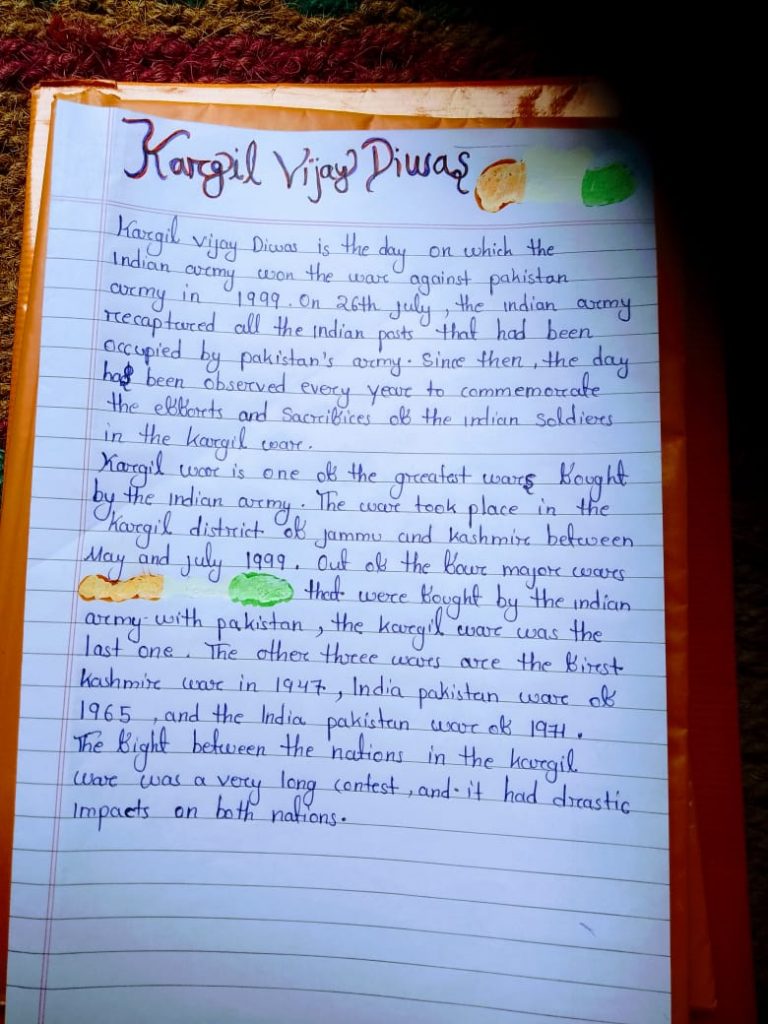 Kargil Vijay Diwas
Kargil Vijay Diwas is the day on which the
Indian army won the war against pakistan
army in 1999. On 26th july, the indian army
recaptured all the indian posts that had been
occupied by pakistan's army. Since then, the day
has been observed every year to commemorate
the efforts and Sacrifices of the indian Soldiers
in the kargil war.
Kargil war is one of the greatest wars fought
by the indian army. The war took place in the
Kargil district of jammu and kashmir between
May and july 1999. Out of the four major wars
that were fought by the indian
army with pakistan, the kargil war was the
last one. The other three wars are the first
kashmir war in 1947, India pakistan war of
1965, and the India pakistan war of 1971.
The fight between the nations in the kargil
war was a very long contest, and it had drastic
impacts on both nations.